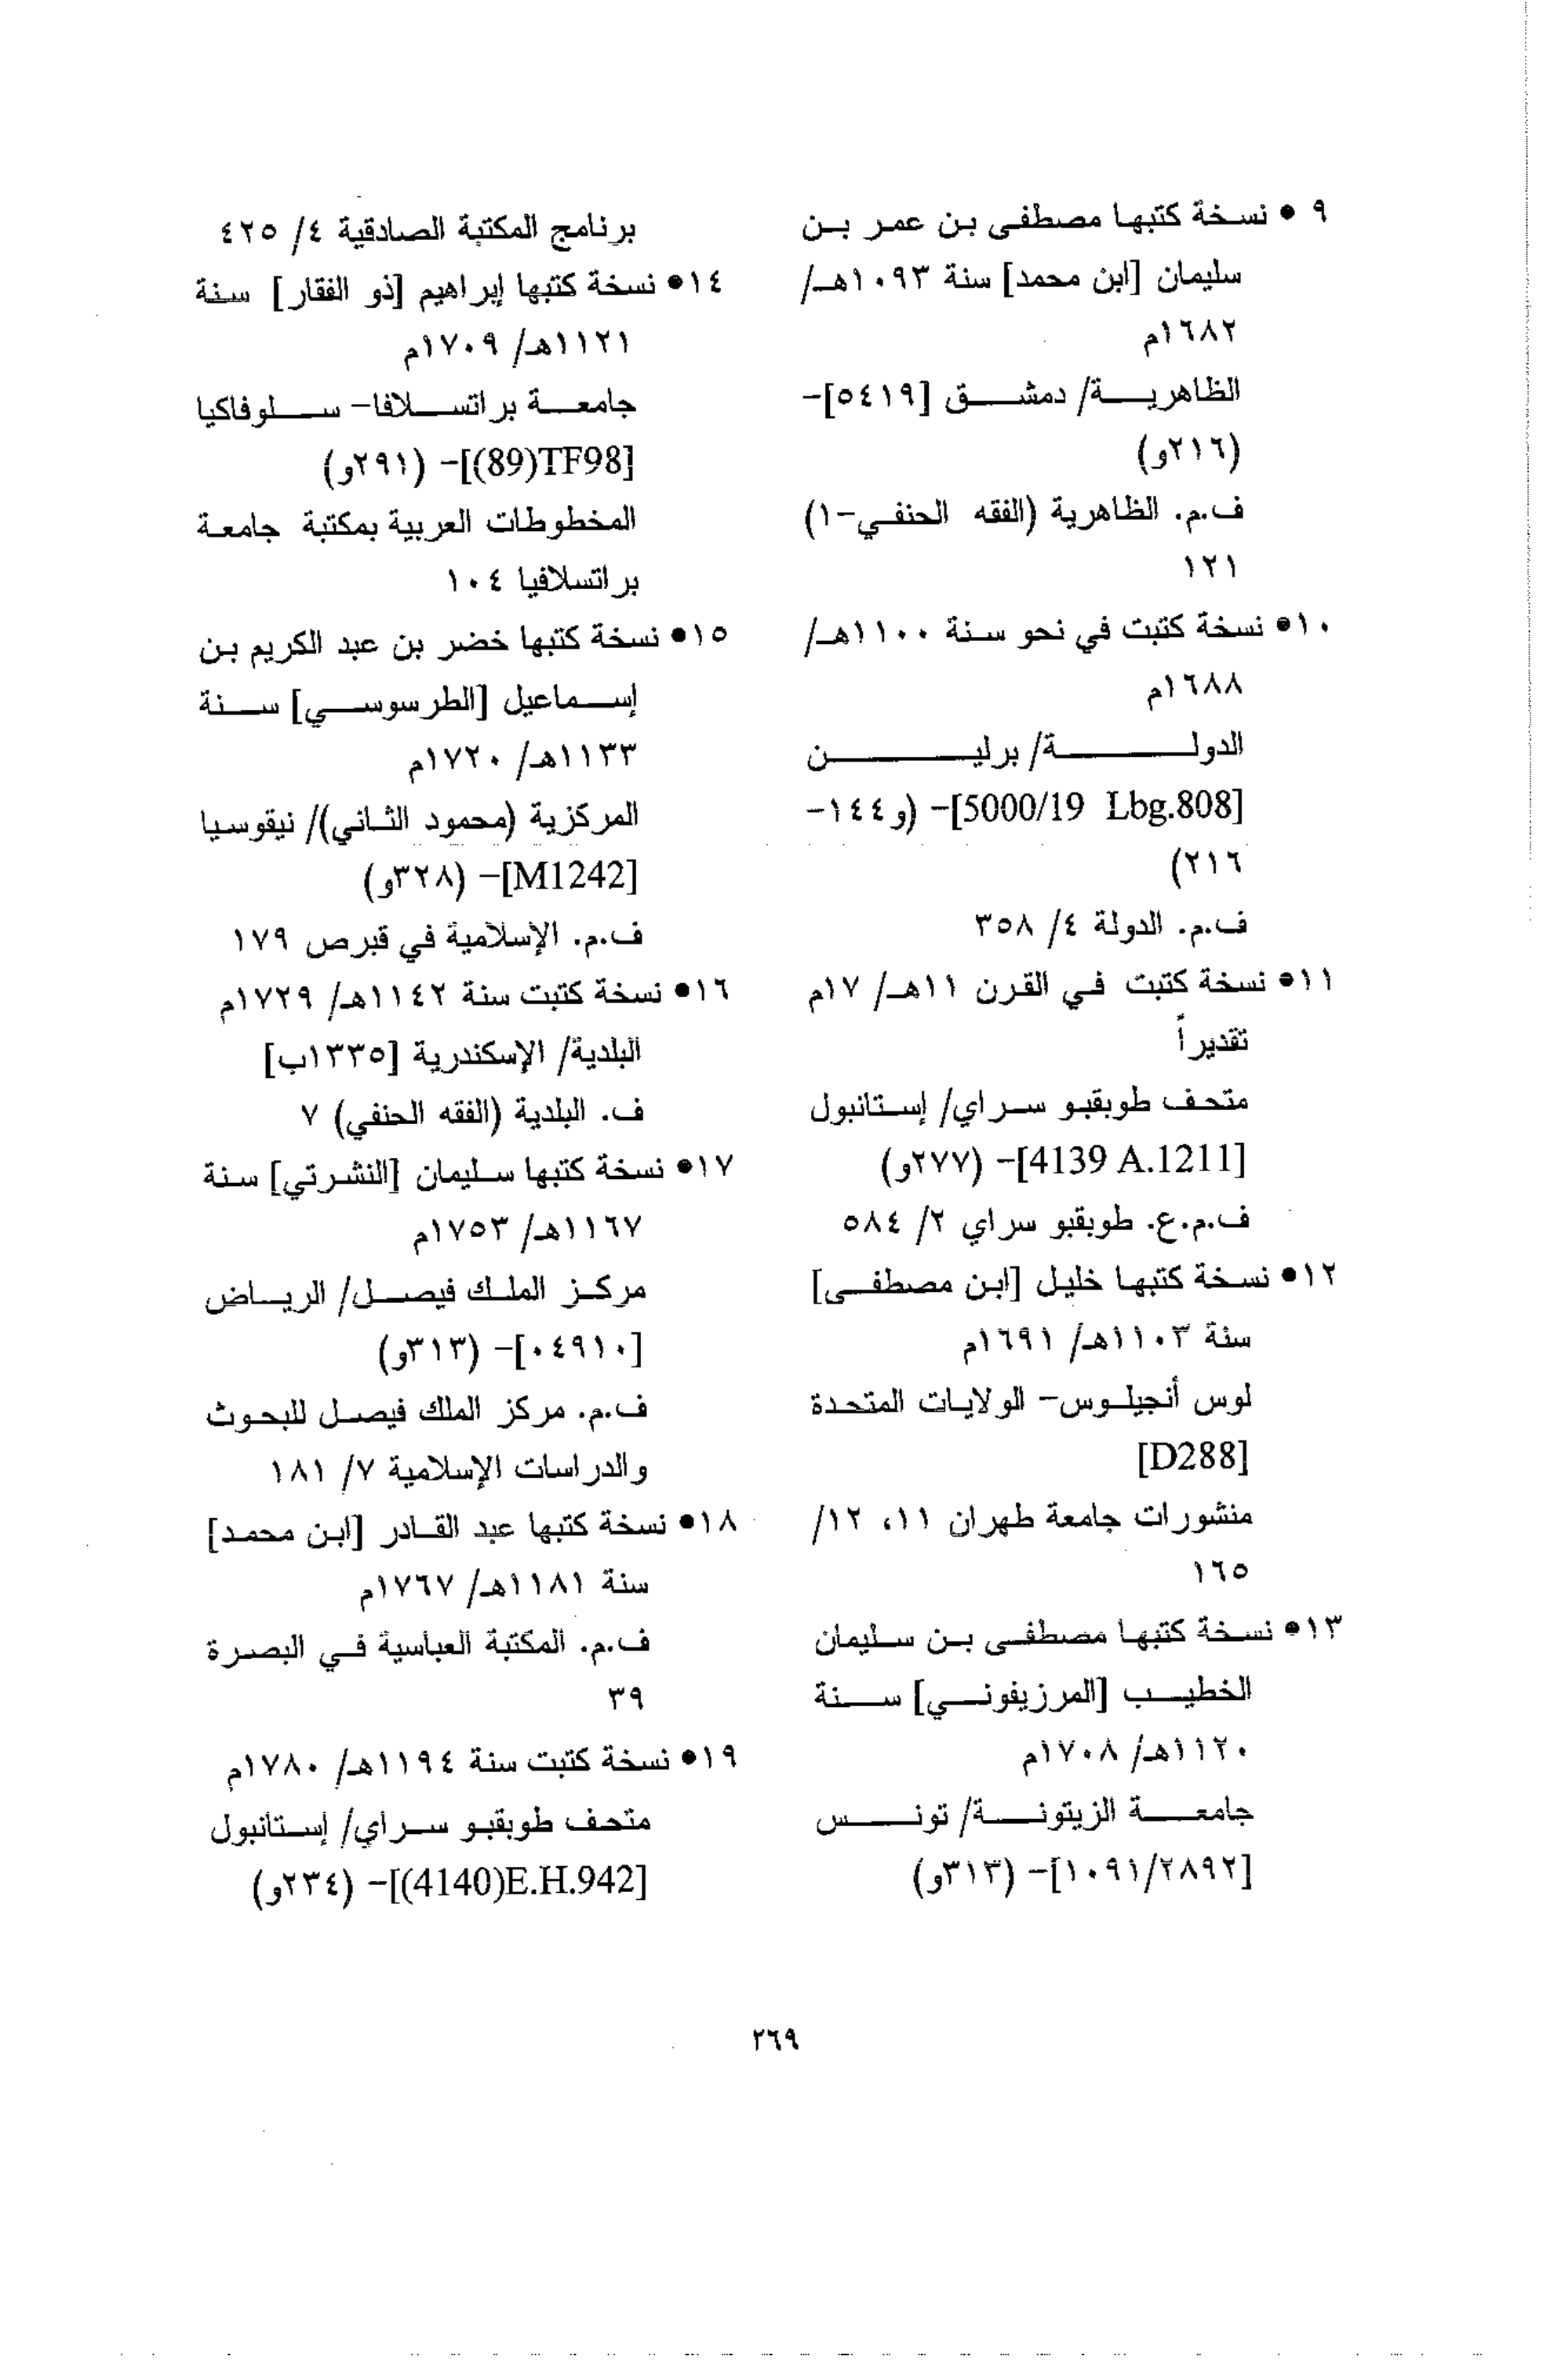 ٩ • نسخة كتبها مصطفى بن عمر بن
سليمان [ابن محمد] سنة ١٠٩٣هـ/
١٦٨٢م
الظاهرية/ دمشق [٥٤١٩]-
(٢١٦و)
ف.م. الظاهرية (الفقه الحنفي-١)
١٢١
١٠• نسخة كتبت في نحو سنة ١١٠٠هـ/
١٦٨٨م
الدولة/ برلين
[5000/19 Lbg.808]- (و١٤٤-
٢١٦)
ف.م. الدولة ٤/ ٣٥٨
١١• نسخة كتبت في القرن ١١هـ/ ١٧م
تقديراً
متحف طوبقبو سراي/ إستانبول
[4139 A.1211]- (٢٧٧و)
ف.م.ع. طوبقبو سراي ٢/ ٥٨٤
١٢• نسخة كتبها خليل [ابن مصطفى]
سنة ١١٠٣هـ/ ١٦٩١م
لوس أنجيلوس- الولايات المتحدة
[D288]
منشورات جامعة طهران ١١، ١٢/
١٦٥
١٣• نسخة كتبها مصطفى بن سليمان
الخطيب [المرزيفوني] سنة
١١٢٠هـ/ ١٧٠٨م
جامعة الزيتونة/ تونس
[١٠٩١/٢٨٩٢]- (٣١٣و)
برنامج المكتبة الصادقية ٤/ ٤٢٥
١٤• نسخة كتبها إبراهيم [ذو الفقار] سنة
١١٢١هـ/ ١٧٠٩م
جامعة براتسلافا- سلوفاكيا
[TF98(89)]- (٢٩١و)
المخطوطات العربية بمكتبة جامعة
براتسلافيا ١٠٤
١٥• نسخة كتبها خضر بن عبد الكريم بن
إسماعيل [الطرسوسي] سنة
١١٣٣هـ/ ١٧٢٠م
المركزية (محمود الثاني)/ نيقوسيا
[M1242]- (٣٢٨و)
ف.م. الإسلامية في قبرص ١٧٩
١٦• نسخة كتبت سنة ١١٤٢هـ/ ١٧٢٩م
البلدية/ الإسكندرية [١٣٣٥ب]
ف. البلدية (الفقه الحنفي) ٧
١٧• نسخة كتبها سليمان [النشرتي] سنة
١١٦٧هـ/ ١٧٥٣م
مركز الملك فيصل/ الرياض
[٠٤٩١٠]- (٣١٣و)
ف.م. مركز الملك فيصل للبحوث
والدراسات الإسلامية ٧/ ١٨١
١٨• نسخة كتبها عبد القادر [ابن محمد]
سنة ١١٨١هـ/ ١٧٦٧م
ف.م. المكتبة العباسية في البصرة
٣٩
١٩• نسخة كتبت سنة ١١٩٤هـ/ ١٧٨٠م
متحف طوبقبو سراي/ إستانبول
[E.H.942(4140)]- (٢٣٤و)
٢٦٩